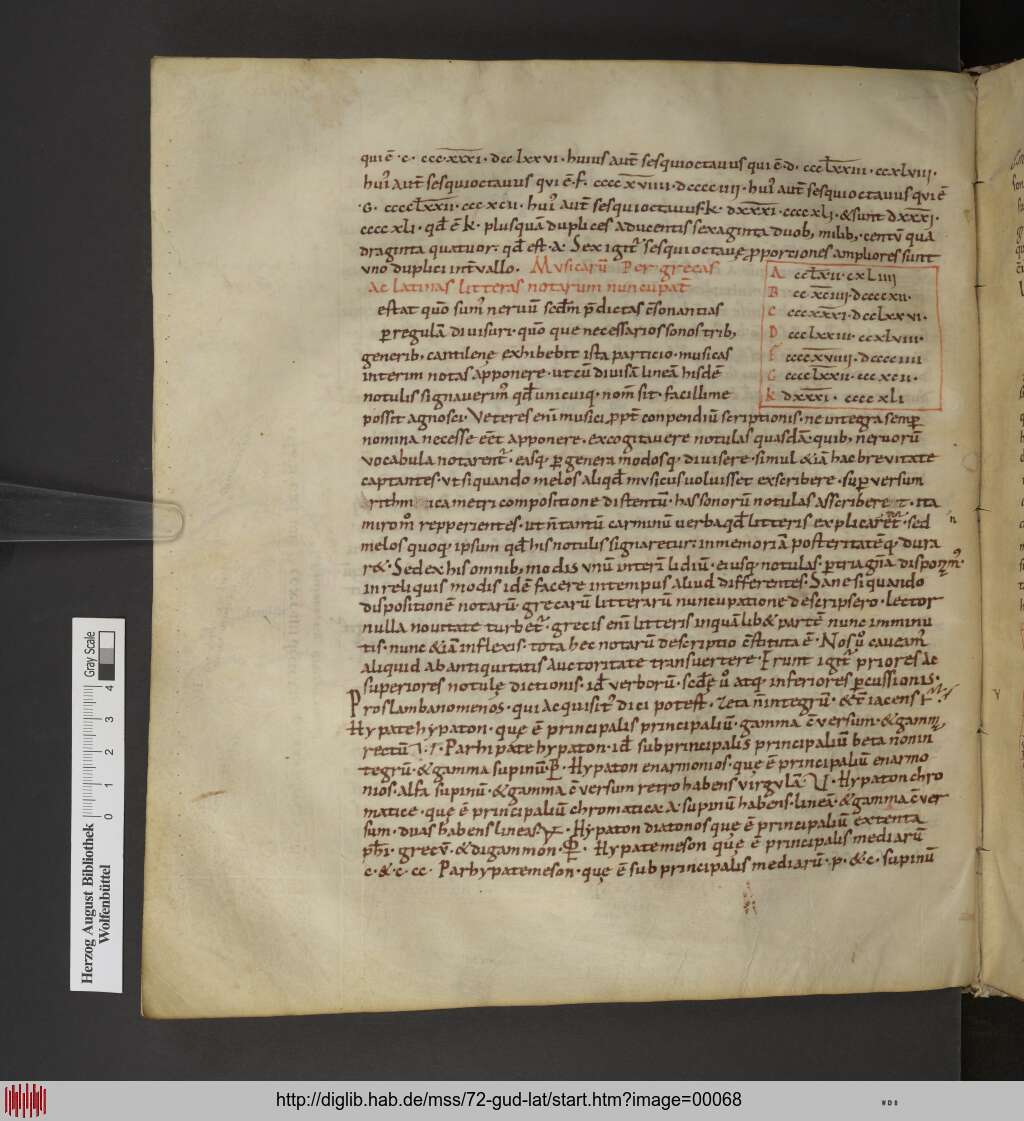 qui ē · c · ccc·xxxi· dcclxxvi · huius aut̄ sesquioctauus qui ē· d· ccclxxiii· ccxlviii·
hui' aut̄ sesquioctauus qui ē· f· ccccxviiii· dcccciiii· hui' aut̄ sesquioctauus qui ē
·G· cccclxxii· cccxcii· hui' aut̄ sesquioctauus· k· dxxxi· ccccxli· & sunt dxxxi·
ccccxli· qd̄ ē k· plusquā duplices aducentis sexaginta duob; milib; centū qua
draginta quatuor· qd̄ est· a· Sex igit̄ sesquioctauę proportiones ampliores sunt
uno duplici int̄uallo· Musicarū Per grecas
ac latinas litteras notarum nuncupat̄
A cclxii· cxliiii
B ccxciiii· dccccxii·
C cccxxxi· dcclxxvi·
D ccclxxiii· ccxlviii·
F ccccxviiii· dcccciiii
G cccclxxii· cccxcii·
K dxxxi· ccccxli
estat quō sum' neruū scdm̄ p̄dictas c̄sonantias
p regulā diuisuri· quō que necessarios sonos trib;
generib; cantilenę exhibebit ista particio· musicas
interim notas apponere· ut cū diuisā lineā hisdē
notulis signauerim' qd̄ unicuiq· nom̄ sit· facillime
possit agnosci· Veteres eni musici ppt̄ conpendiū scriptionis· ne integra semp
nomina necesse eēt apponere· excogitauere notulas quasdā· quib; neruorū
uocabula notarent̄· easq· p genera modosq· diuisere· simul & iā hac breuitate
captantes· ut si quando melos aliqd̄ musicus uoluisset exscribere· sup uersum
rithm ica metri compositione distentū· has sonorū notulas asscribere t· ita
miro m° repperientes· ut n̄ tantū carminū uerba qd̄ litteris explicarent̄· sed
melos quoq· ipsum qd̄ his notulis signaretur· in memoriā posteritatēq· dura
r&· Sed ex his omnib; modis unū interī lidiū· eiusq· notulas· p tria gn̄a disponem'·
in reliquis modis idē facere in tempus aliud differentes· Sane si quando
dispositionē notarū grecarū litterarū nuncupatione descripsero· lector
nulla nouitate turbet̄· grecis eni litteris in quā lib& partē nunc imminu
tis· nunc & iā inflexis· tota hec notarū descriptio c̄stituta ē· Nos ů caueam'
aliquid ab antiquitatis auctoritate transuertere· Erunt igit̄ priores ac
superiores notulę dictionis· id̄ uerborū· scdę ů atq· inferiores pcussionis·
Proslambanomenos· qui acquisit' dici potest· zeta n̄ integrū· & t̄ iacens
Hypate hypaton· quę ē principalis principaliū· gamma c̄uersum· & gamm̄
rectū· Parhipate hypaton· id̄ subprincipalis principaliū beta non in
tegrū· & gamma supinū· Hypaton enarmonios· quę ē principaliū enarmo
nios· alfa supinū· & gamma c̄uersum retro habens uirgulā· Hypaton chro
matice· quę ē principaliū chromatica· a· supinū habens· lineā· & gamma c̄uer
sum· duas habens lineas· Hypaton diatonos quę ē principaliū extenta
phi· grecū· & digammon· Hypate meson quę ē principalis mediarū
c· & c· cc· Parhypate meson· quę ē subprincipalis mediarū· p· & c· supinū
Herzog August Bibliothek
Wolfenbüttel
0 1 2 3 4
Gray Scale
http://diglib.hab.de/mss/72-gud-lat/start.htm?image=00068